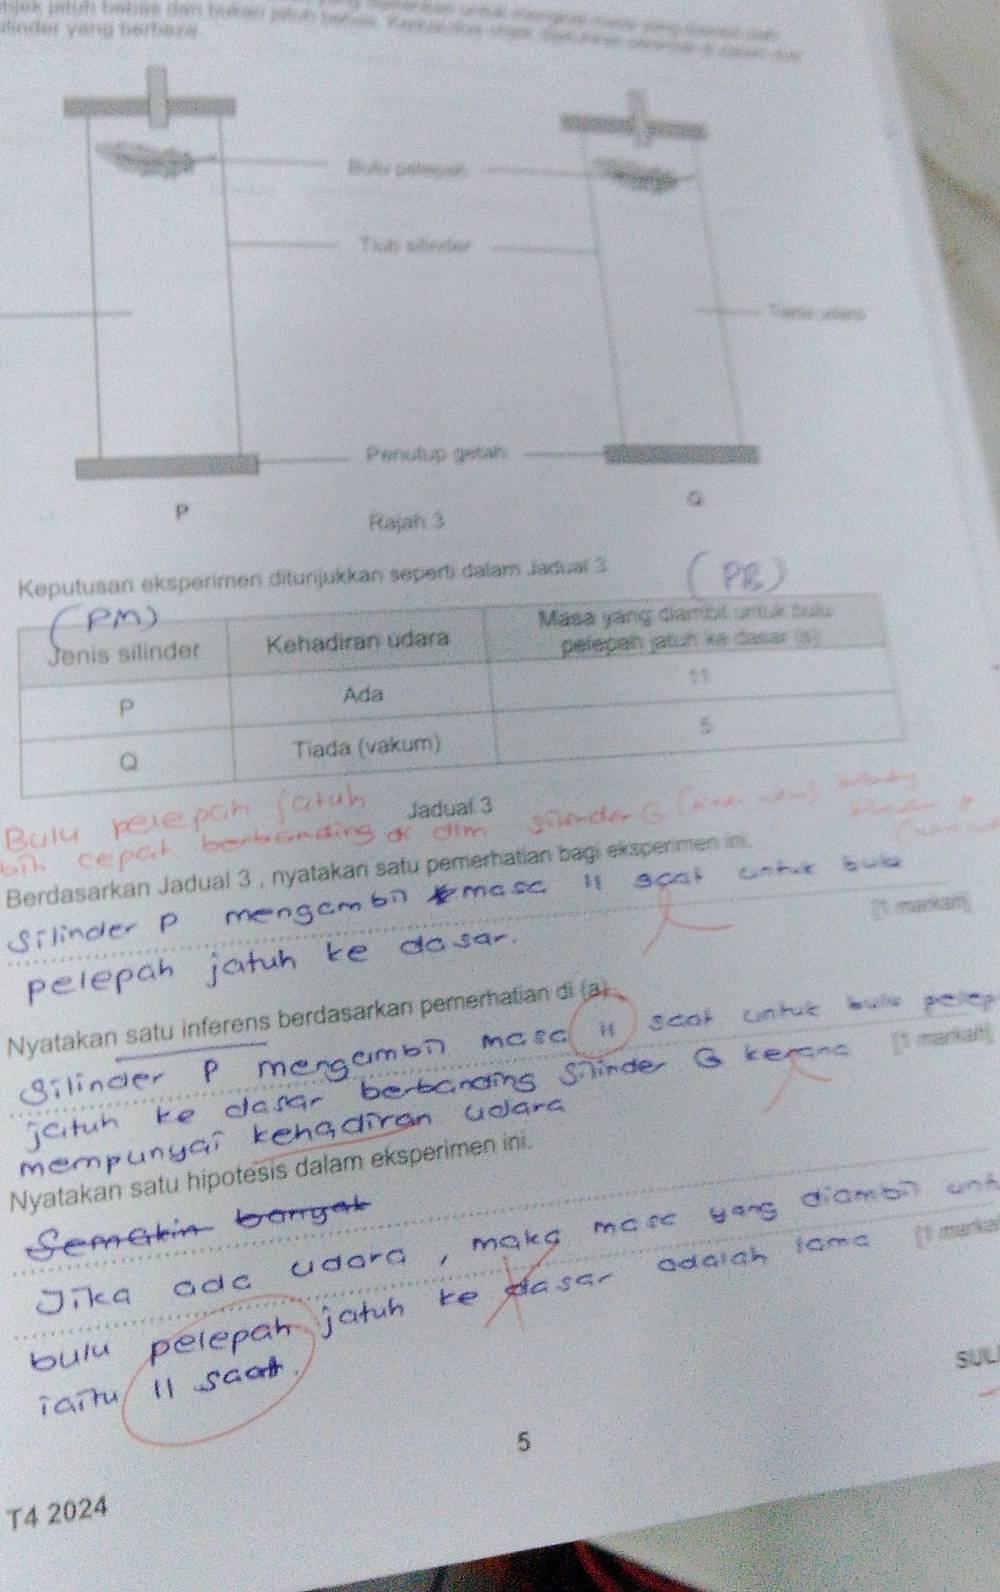 objek jatuh bebas dan bukan jatuh bebas.
silinder yang berbeza
Bulu pelepah
Tiub silinder
Tiada udara
Penutup getah
P
Q
Rajah 3
Keputusan eksperimen ditunjukkan seperti dalam Jadual 3
(PM)
(PB)
Jenis silinder
Kehadiran udara
Masa yang diambil untuk bulu
pelepah jatuh ke dasar (s)
P
Ada
11
Q
Tiada (vakum)
5
Jadual 3
Bulu pelepah jatuh
cepat berbanding di dlm silinder
Berdasarkan Jadual 3 , nyatakan satu pemerhatian bagi eksperimen ini.
Silinder P mengambil masa 11 saat untuk bulu
[1 markah]
pelepah jatuh ke dasar.
Nyatakan satu inferens berdasarkan pemerhatian di (a)
Silinder P mengambil masa 11 saat untuk bulu pelep
[1 markah]
jatuh ke dasar berbanding silinder Q kerana
mempunyai kehadiran udara
Nyatakan satu hipotesis dalam eksperimen ini.
Semakin banyak
Jika ada udara, maka masa yang diambil unt
[1 marka
bulu pelepah jatuh ke dasar adalah lama
iaitu 11 saat.
SULI
5
T4 2024